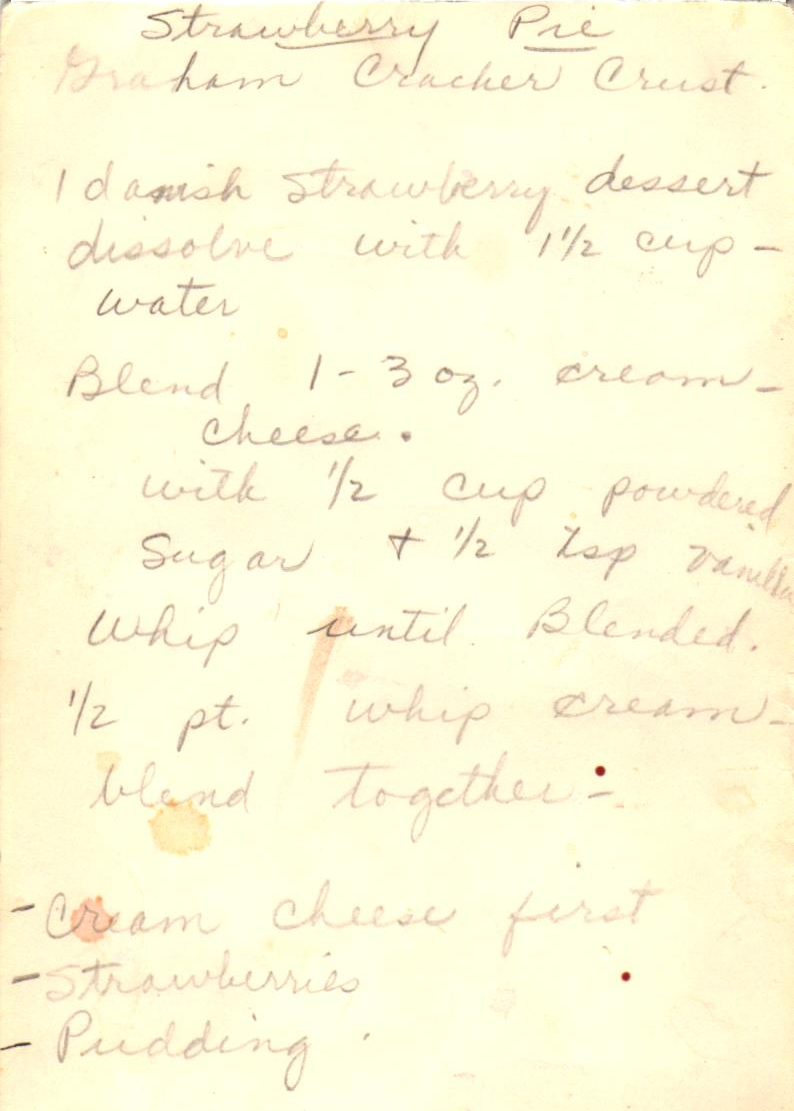 Strawberry Pie
Graham Cracker Crust.
1 danish Strawberry dessert
dissolve with 1 1/2 cup -
water
Blend 1 - 3 oz. cream -
cheese.
with 1/2 cup powdered
Sugar + 1/2 tsp vanilla
Whip until Blended.
1/2 pt. whip cream -
blend together -
- Cream cheese first
- Strawberries
- Pudding.